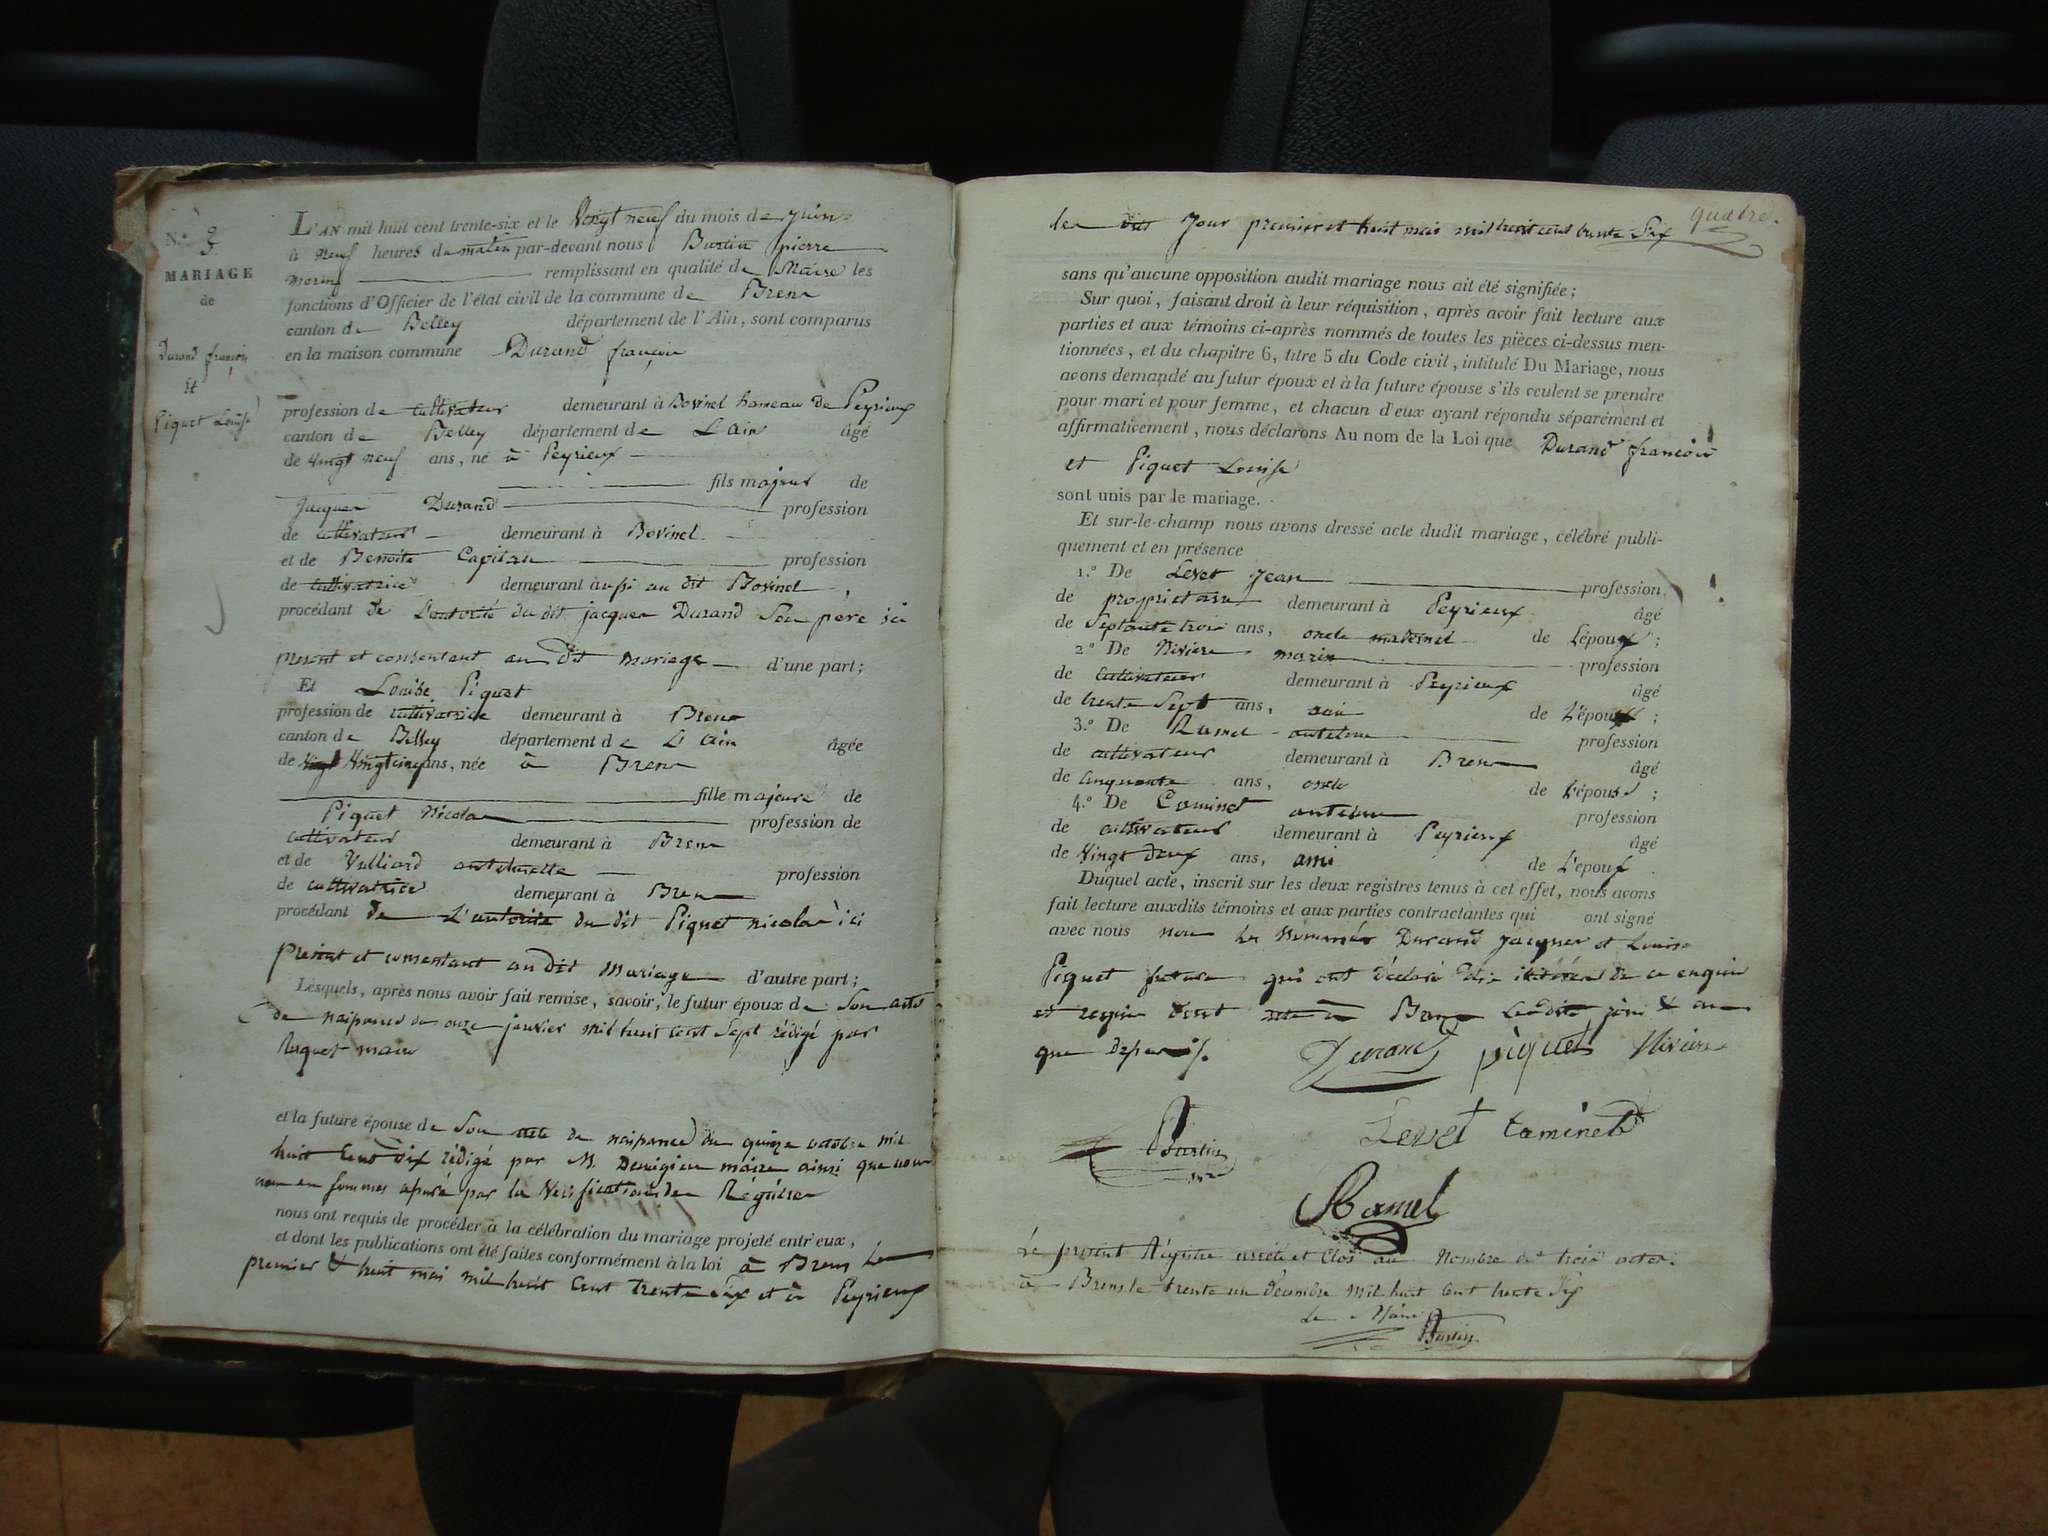 N.º 3
MARIAGE
de
Durand françois
et
Piquet Louise
L'AN mil huit cent trente-six et le Vingt neuf du mois de juin
à neuf heures du matin par-devant nous Burtin pierre
marin remplissant en qualité de Maire les
fonctions d'Officier de l'état civil de la commune de Brens
canton de Belley département de l'Ain, sont comparus
en la maison commune Durand françois
profession de cultivateur demeurant à Bovinel hameau de Peyrieux
canton de Belley département de L'Ain âgé
de vingt neuf ans, né à Peyrieux
fils majeur de
Jacques Durand profession
de cultivateur demeurant à Bovinel
et de Benoite Capitan profession
de cultivatrice demeurant aussi au dit Bovinel
procédant de L'autorité du dit jacques Durand Son père ici
présent et consentant au dit mariage d'une part;
Et Louise Piquet
profession de cultivatrice demeurant à Brens
canton de Belley département de L'ain âgée
de vingt cinq ans, née à Brens
fille majeure de
Piquet Nicolas profession de
cultivateur demeurant à Brens
et de Vulliard anthelmette profession
de cultivatrice demeurant à Brens
procédant de L'autorité du dit Piquet nicolas ici
présent et consentant au dit Mariage d'autre part;
Lesquels, après nous avoir fait remise, savoir, le futur époux de Son acte
de naissance du onze janvier mil huit cent Sept rédigé par
Roquet maire
et la future épouse de Son acte de naissance du quinze octobre mil
huit Cent dix rédigé par M. maire ainsi que nous
nous en sommes assuré par la Vérification des Régistres
nous ont requis de procéder à la célébration du mariage projeté entr'eux,
et dont les publications ont été faites conformément à la loi à Brens les
premier & huit mai mil huit Cent trente Six et à Peyrieux
quatre.
les dits Jour premier et huit mai mil huit cent trente Six
sans qu'aucune opposition audit mariage nous ait été signifiée;
Sur quoi, faisant droit à leur réquisition, après avoir fait lecture aux
parties et aux témoins ci-après nommés de toutes les pièces ci-dessus men-
tionnées, et du chapitre 6, titre 5 du Code civil, intitulé Du Mariage, nous
avons demandé au futur époux et à la future épouse s'ils veulent se prendre
pour mari et pour femme, et chacun d'eux ayant répondu séparément et
affirmativement, nous déclarons Au nom de la Loi que Durand françois
et Piquet Louise
sont unis par le mariage.
Et sur-le-champ nous avons dressé acte dudit mariage, célébré publi-
quement et en présence
1.º De Levet Jean profession
de propriétaire demeurant à Peyrieux âgé
de Septante trois ans, oncle maternel de L'époux;
2.º De Nivière marin profession
de cultivateur demeurant à Peyrieux âgé
de trente Sept ans, ami de L'époux;
3.º De Ramel antelme profession
de cultivateur demeurant à Brens âgé
de cinquante ans, oncle de L'épouse;
4.º De Caminet antelme profession
de cultivateur demeurant à Peyrieux âgé
de Vingt deux ans, ami de L'époux
Duquel acte, inscrit sur les deux registres tenus à cet effet, nous avons
fait lecture auxdits témoins et aux parties contractantes qui ont signé
avec nous non les Nommés Durand jacques et Louise
Piquet future qui ont déclaré être illitérés de ce enquis
et requis Brens jour & an
que dessus
Durand piquet Nivière
Burtin Levet Caminet
Ramel
Le présent Régistre arrêté et Clos au Nombre de trois actes
à Brens le trente un décembre mil huit Cent trente Six
Le Maire
Burtin